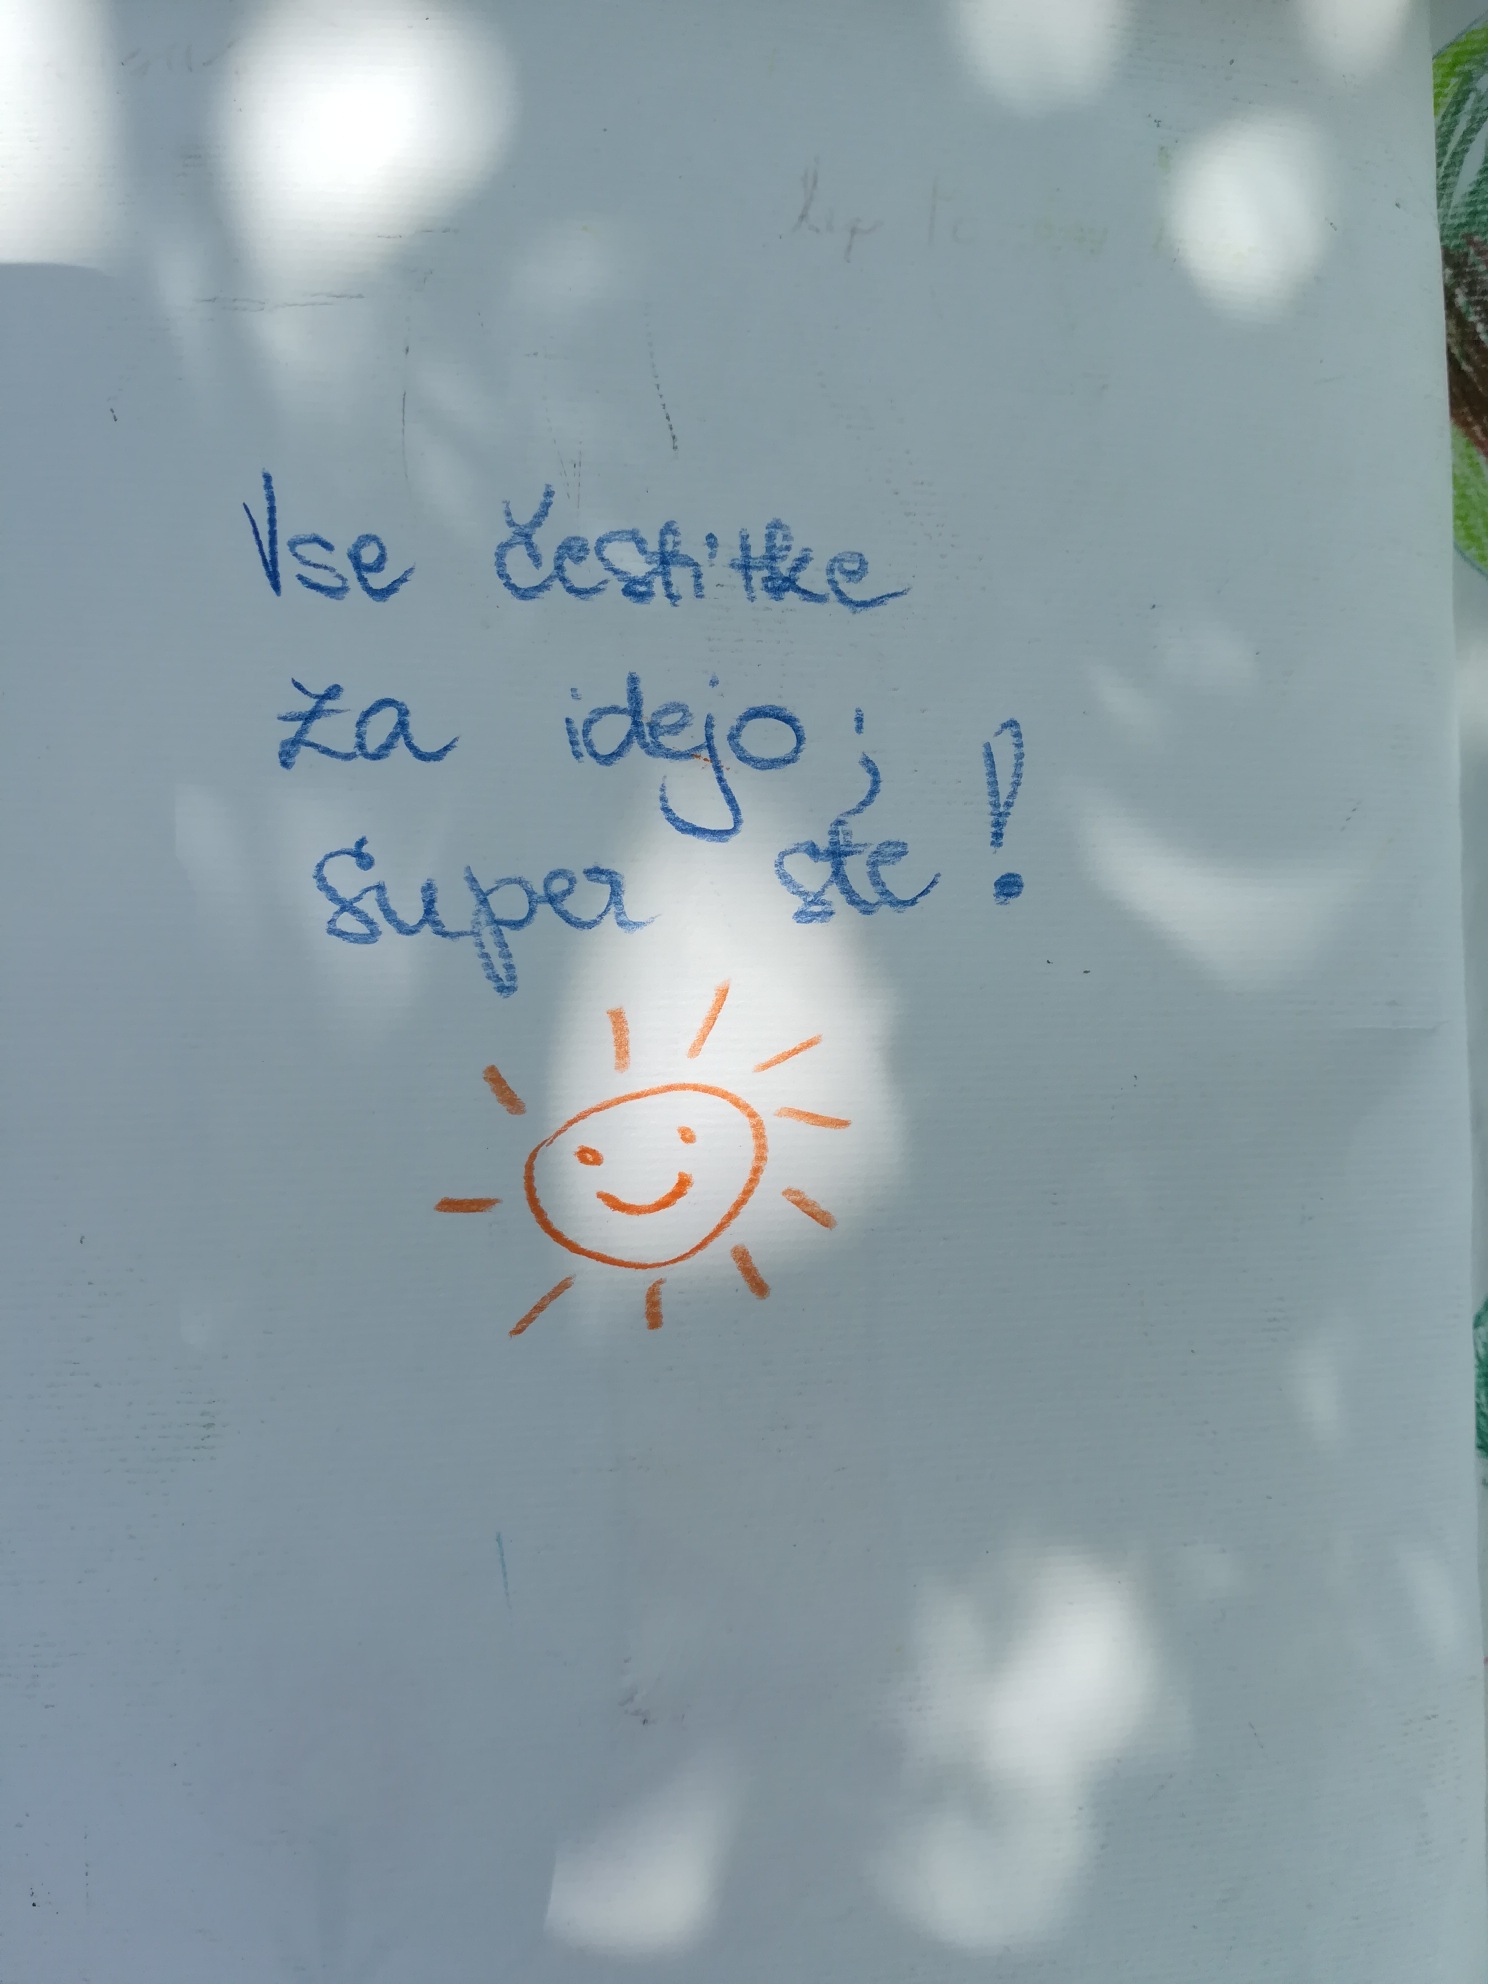 Vse čestitke
za idejo;
super ste!